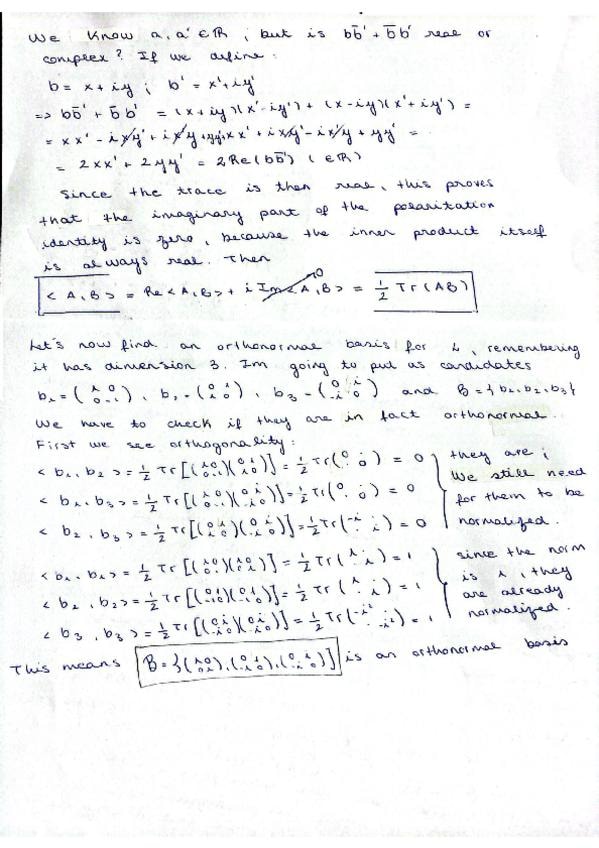 We know a, a' ∈ ℝ ; but is bb̄' + b̄b' real or
complex? If we define:
b = x + iy ; b' = x' + iy'
=> bb̄' + b̄b' = (x+iy)(x'-iy') + (x-iy)(x'+iy') =
= xx' - ixy' + ix'y + yy' + xx' + ixy' - ix'y + yy' =
= 2xx' + 2yy' = 2Re(bb̄') (∈ℝ)
Since the trace is then real, this proves
that the imaginary part of the polarization
identity is zero, because the inner product itself
is always real. Then
<A,B> = Re<A,B> + i Im<A,B> 0 = 1/2 Tr(AB)
Let's now find an orthonormal basis for L, remembering
it has dimension 3. Im going to put as candidates
b₁ = (1 0 0 -1), b₂ = (0 1 1 0), b₃ = (0 i -i 0) and B = {b₁, b₂, b₃}
We have to check if they are in fact orthonormal.
First we see orthogonality:
<b₁, b₂> = 1/2 Tr[(1 0 0 -1)(0 1 1 0)] = 1/2 Tr(0 · · 0) = 0 they are ;
<b₁, b₃> = 1/2 Tr[(1 0 0 -1)(0 i -i 0)] = 1/2 Tr(0 · · 0) = 0 We still need
<b₂, b₃> = 1/2 Tr[(0 1 1 0)(0 i -i 0)] = 1/2 Tr(-i · · i) = 0 for them to be
normalized.
<b₁, b₁> = 1/2 Tr = 1 since the norm
<b₂, b₂> = 1/2 Tr = 1 is 1, they
<b₃, b₃> = 1/2 Tr (-i² · · -i²) = 1 are already
normalized.
This means B = {(1 0 0 -1), (0 1 1 0), (0 i -i 0)} is an orthonormal basis